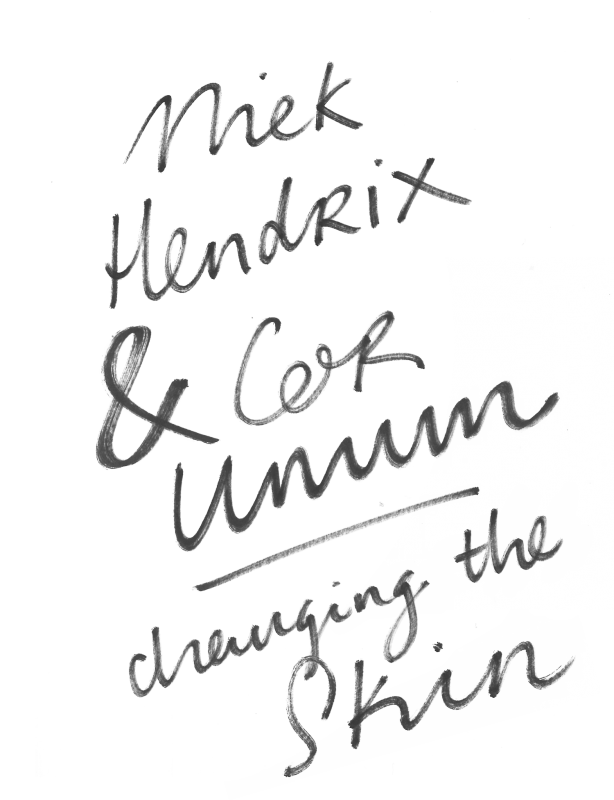 Niek
Hendrix
& Cor
unum
changing the
Skin